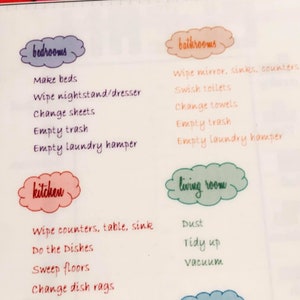 bedrooms
Make beds
Wipe nightstand/dresser
Change sheets
Empty trash
Empty laundry hamper
bathrooms
Wipe mirror, sinks, counters
Swish toilets
Change towels
Empty trash
Empty laundry hamper
kitchen
Wipe counters, table, sink
Do the Dishes
Sweep floors
Change dish rags
living room
Dust
Tidy up
Vacuum